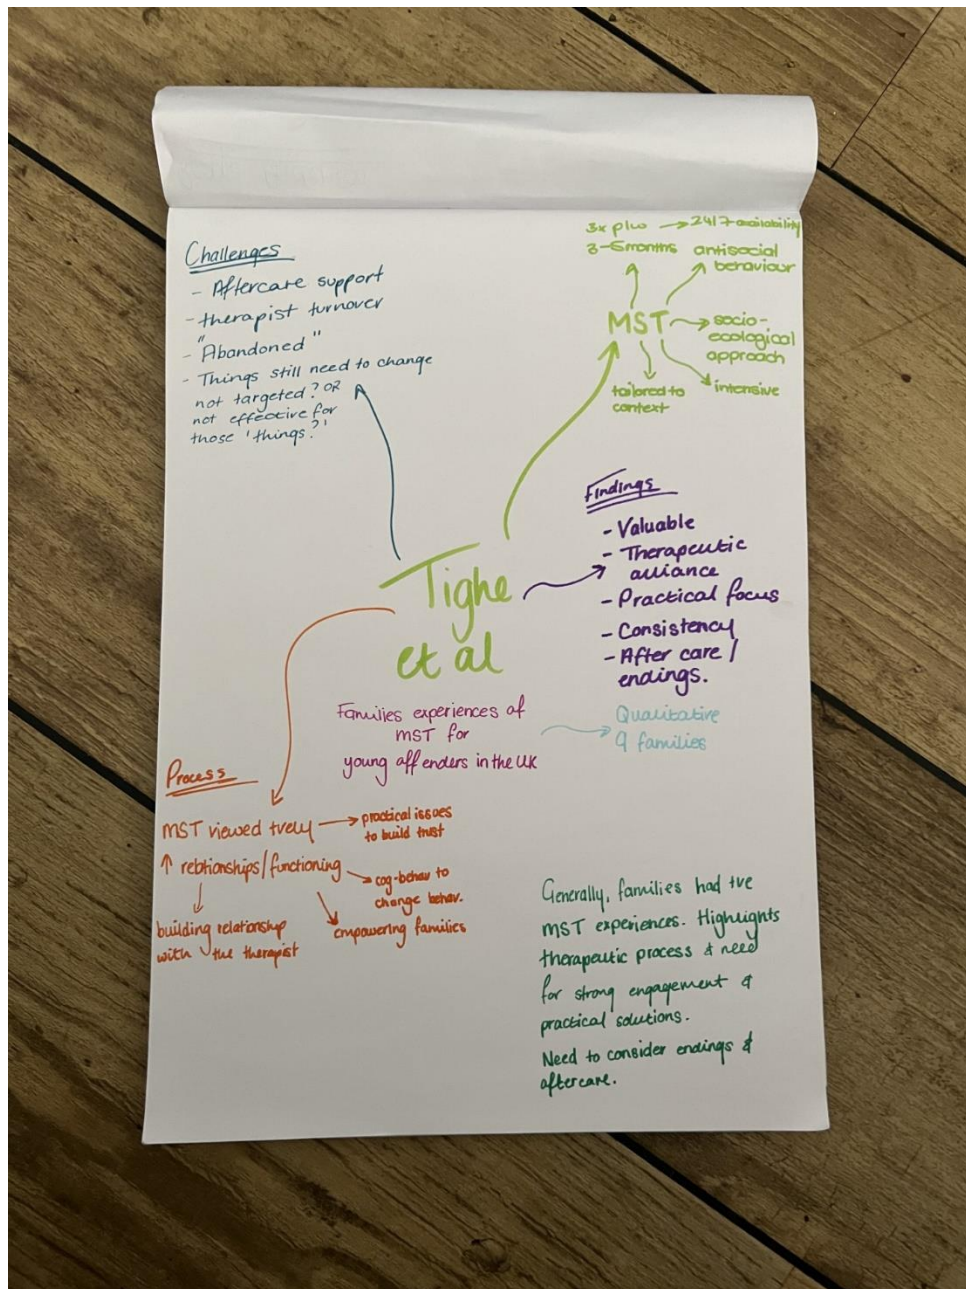 Challenges
- Aftercare support
- therapist turnover
- "Abandoned"
- Things still need to change
not targeted? OR
not effective for
those 'things?'
3x plw → 24/7 availability
3-5months
antisocial
behaviour
MST
socio-
ecological
approach
tailored to
context
intensive
Findings
- Valuable
- Therapeutic
alliance
- Practical focus
- Consistency
- After care /
endings.
Tighe
et al
Families experiences of
MST for
young offenders in the UK
Qualitative
9 families
Process
MST viewed +vely
practical issues
to build trust
↑ reltionships/functioning
cog-behav to
change behav.
building relationship
with the therapist
empowering families
Generally, families had +ve
MST experiences. Highlights
therapeutic process & need
for strong engagement &
practical solutions.
Need to consider endings &
aftercare.